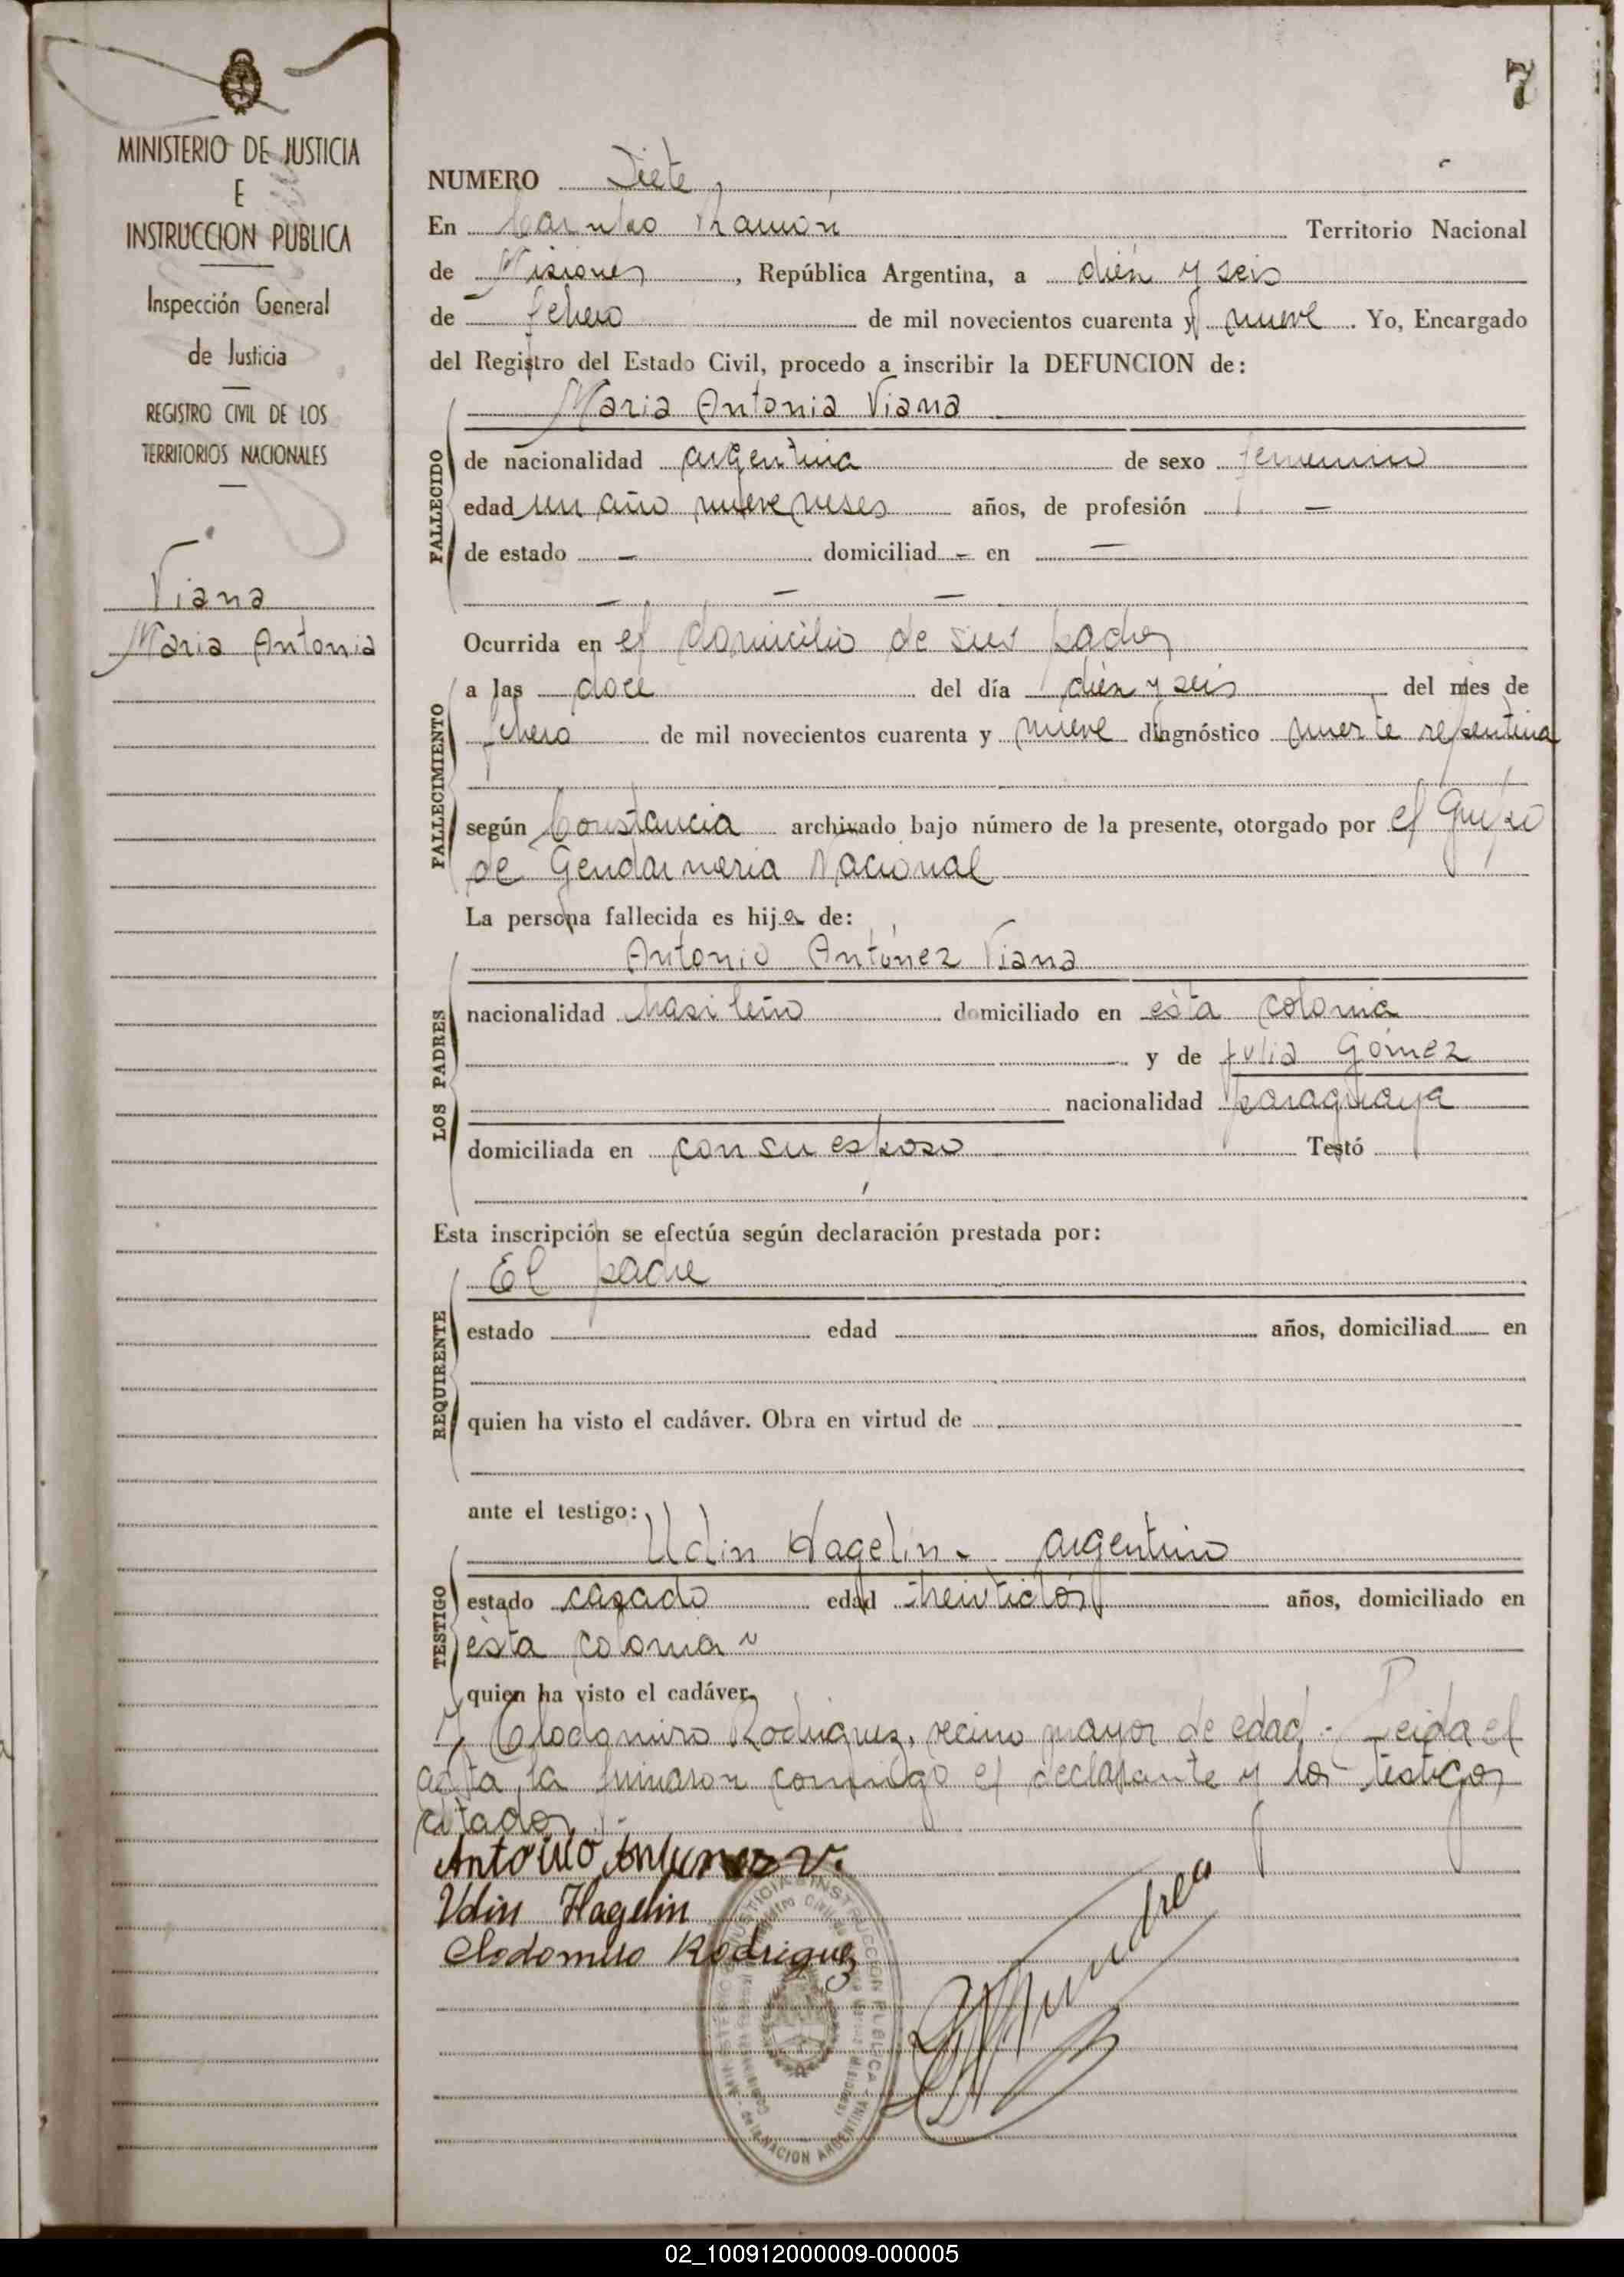 7
MINISTERIO DE JUSTICIA
E
INSTRUCCION PUBLICA
Inspección General
de Justicia
REGISTRO CIVIL DE LOS
TERRITORIOS NACIONALES
Viana
Maria Antonia
NUMERO Siete
En Campo Ramón Territorio Nacional
de Misiones, República Argentina, a diéz y seis
de febrero de mil novecientos cuarenta y nueve. Yo, Encargado
del Registro del Estado Civil, procedo a inscribir la DEFUNCION de:
Maria Antonia Viana
FALLECIDO
de nacionalidad argentina de sexo femenino
edad un año nueve meses años, de profesión —
de estado — domiciliad - en —
— — —
Ocurrida en el domicilio de sus padres
FALLECIMIENTO
a las doce del día diéz y seis del mes de
febrero de mil novecientos cuarenta y nueve diagnóstico muerte repentina
según Constancia archivado bajo número de la presente, otorgado por el Grupo
de Gendarmeria Nacional
La persona fallecida es hija de:
LOS PADRES
Antonio Antúnez Viana
nacionalidad brasileño domiciliado en ésta colonia
y de Julia Gómez
nacionalidad paraguaya
domiciliada en con su esposo Testó
Esta inscripción se efectúa según declaración prestada por:
REQUIRENTE
El padre
estado edad años, domiciliad en
quien ha visto el cadáver. Obra en virtud de
ante el testigo:
TESTIGO
Udin Hagelin - argentino
estado casado edad años, domiciliado en
ésta colonia
quien ha visto el cadáver
y Clodomiro Rodriguez, vecino mayor de edad.- Leida el
acta, la firmaron conmigo el declarante y los testigos
citados.-
Antonio Antunez V.
Udin Hagelin
Clodomiro Rodriguez
02_100912000009-000005